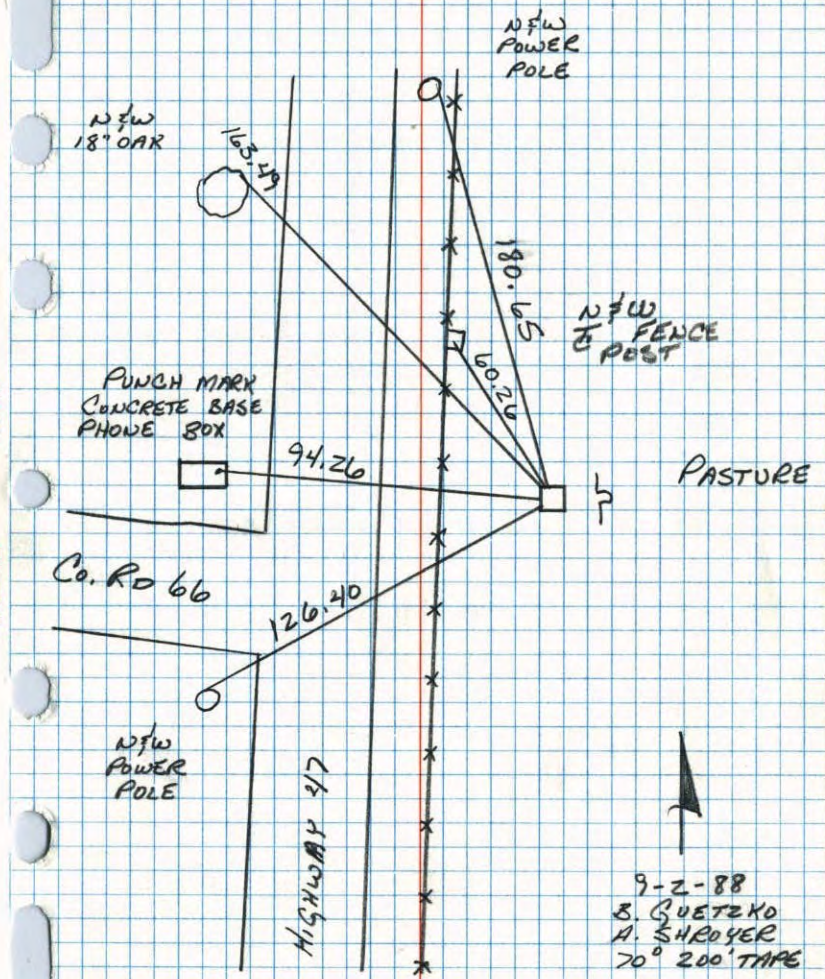 N&W
POWER
POLE
N&W
18" OAK
163.49
180.65
N&W
℄ FENCE
POST
60.26
PUNCH MARK
CONCRETE BASE
PHONE BOX
94.26
PASTURE
Co. RD 66
126.40
N&W
POWER
POLE
HIGHWAY 47
9-2-88
B. GUETZKO
A. SHROYER
70° 200' TAPE